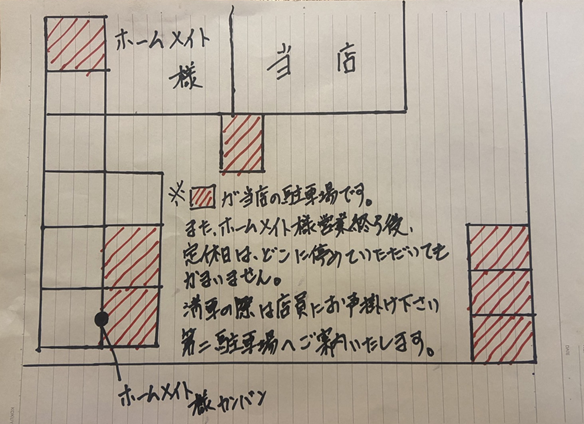 ホームメイト
様
当店
※ が当店の駐車場です。
また、ホームメイト様営業終了後、
定休日は、どこに停めていただいても
かまいません。
満車の際は店員にお声掛け下さい
第二駐車場へご案内いたします。
ホームメイト
様カンバン